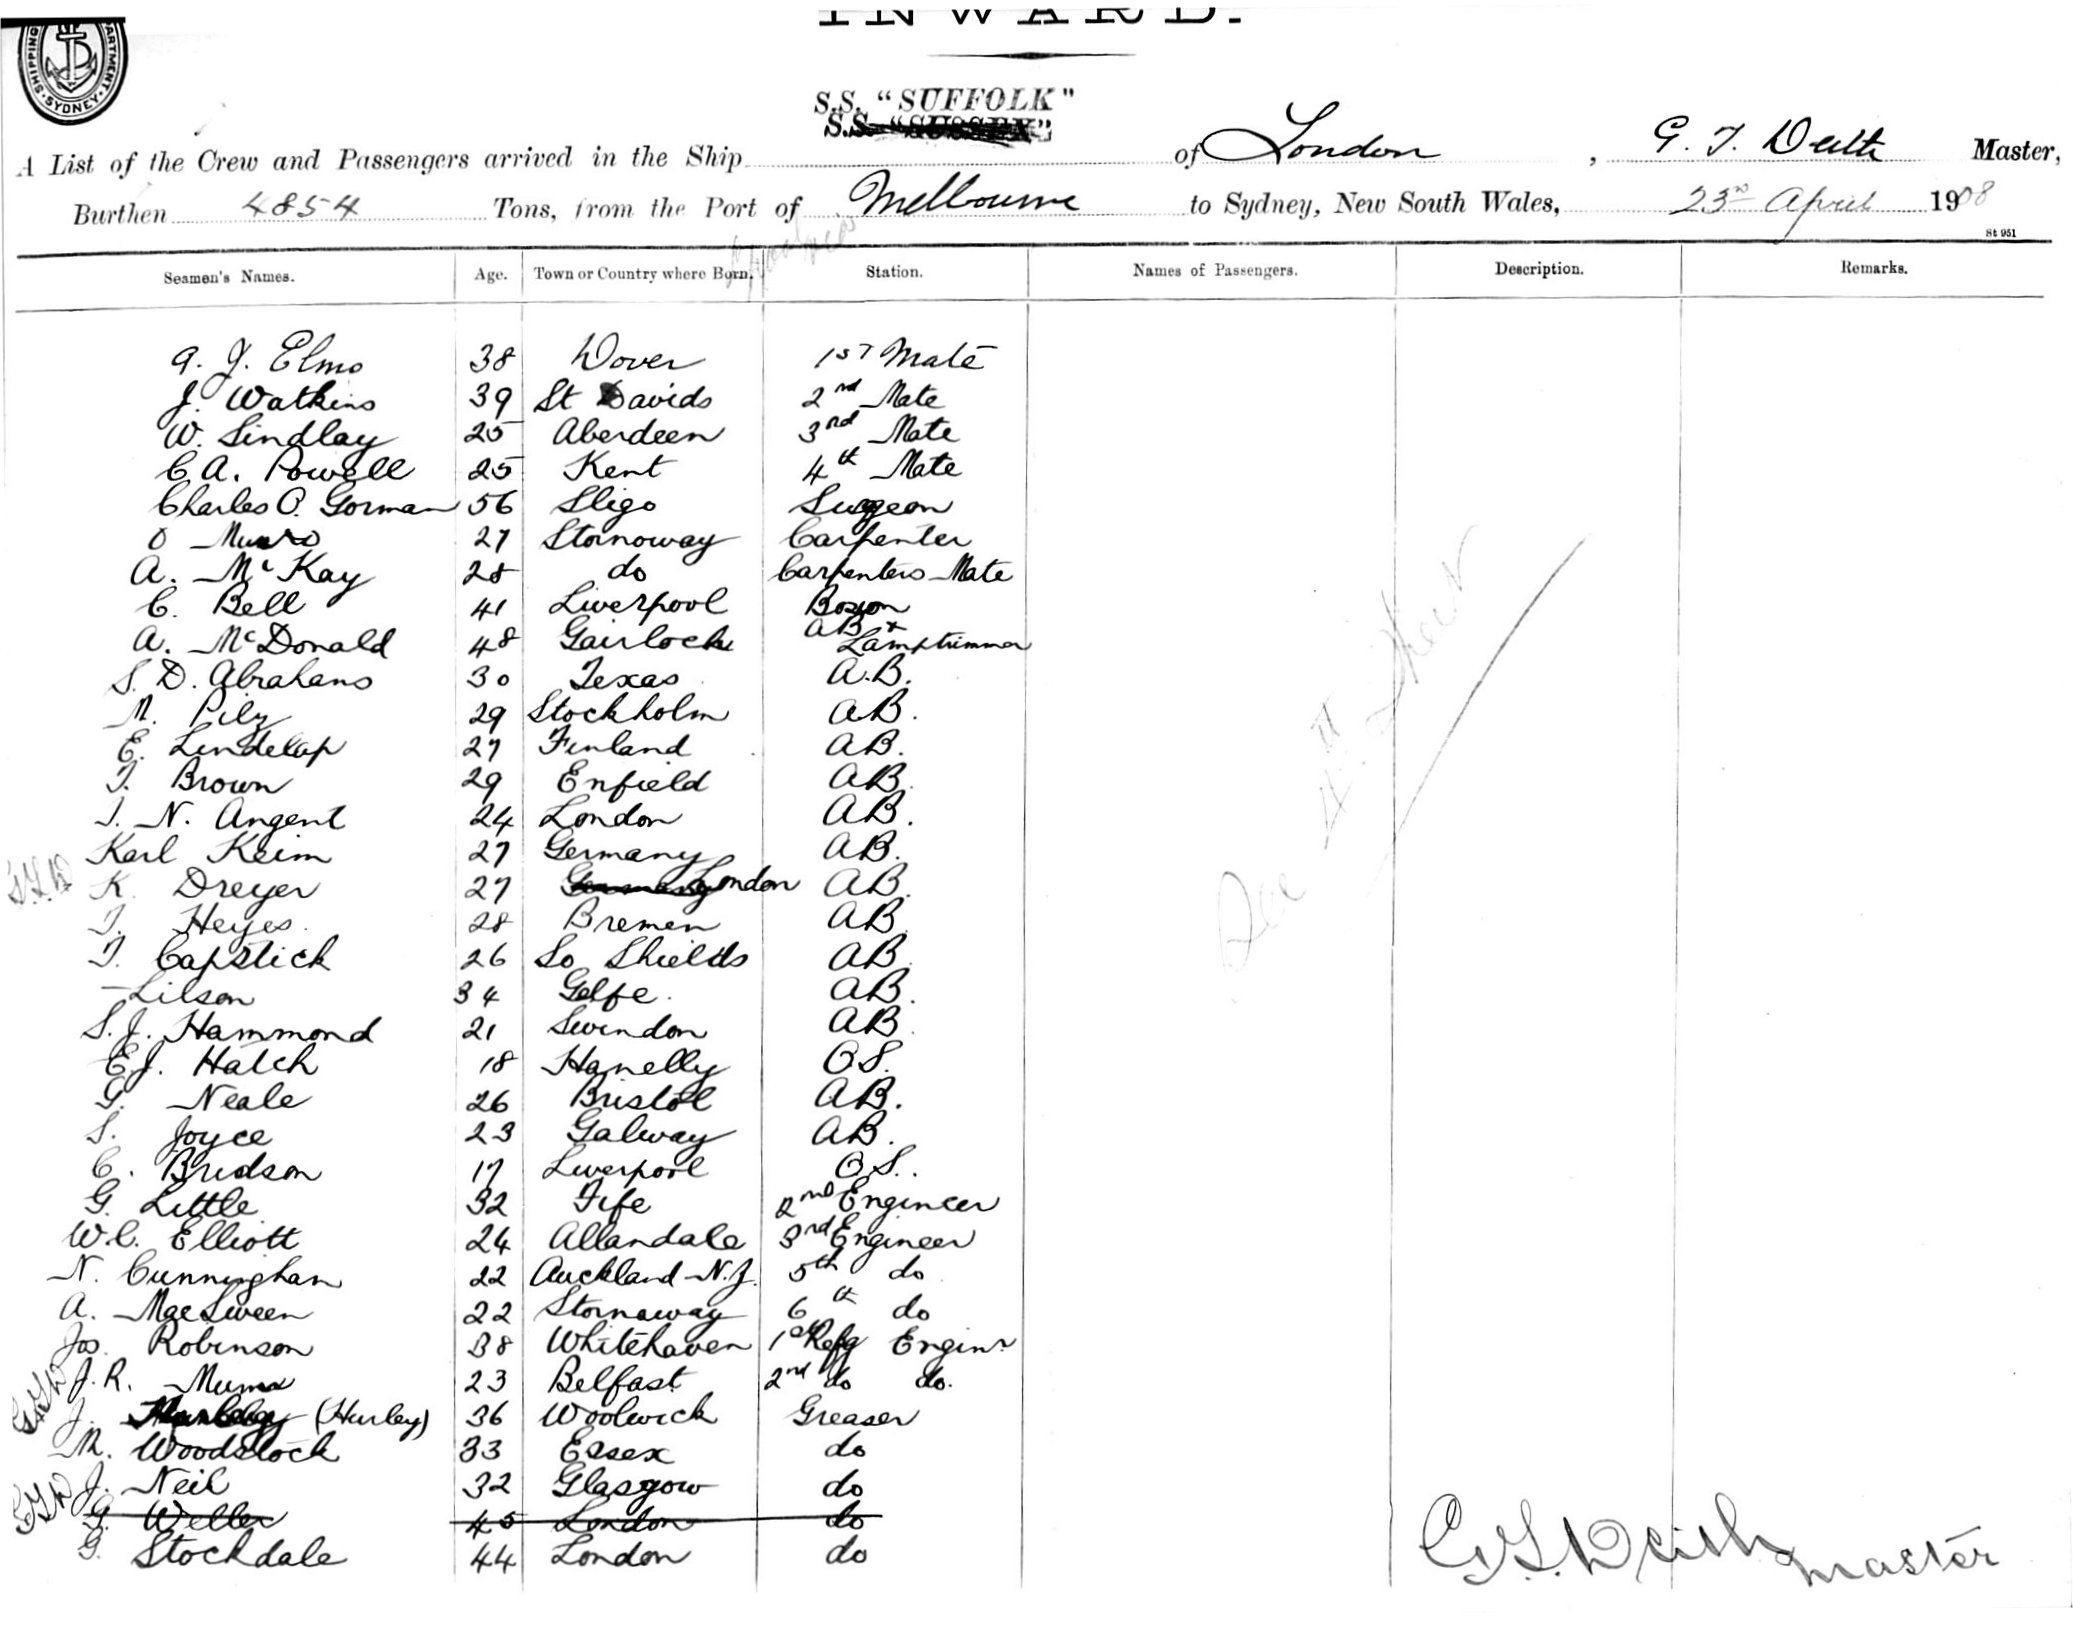 INWARD.
SHIPPING DEPARTMENT. SYDNEY.
S.S. "SUFFOLK"
S.S. "SUSSEX"
A List of the Crew and Passengers arrived in the Ship of London, G. T. Deith Master,
Burthen 4854 Tons, from the Port of Melbourne to Sydney, New South Wales, 23rd April 1908
St 951
Seamen's Names. Age. Town or Country where Born. Station. Names of Passengers. Description. Remarks.
A. J. Elmo 38 Dover 1st Mate
J. Watkins 39 St Davids 2nd Mate
W. Lindlay 25 Aberdeen 3rd Mate
C A. Powell 25 Kent 4th Mate
Charles O. Gorman 56 Sligo Surgeon
D Munro 27 Stornoway Carpenter
A. McKay 28 do Carpenters Mate
C. Bell 41 Liverpool Bosun
A. McDonald 48 Gairlock AB & Lamptrimmer
S. D. Abrahams 30 Texas A.B.
M. Pilz 29 Stockholm AB.
E. 27 Finland AB.
T. Brown 29 Enfield AB.
T. N. Angent 24 London AB.
Karl Keim 27 Germany AB.
K. Dreyer 27 Germany London AB.
T. Heyes 28 Bremen AB.
T. Capstick 26 So Shields AB.
Lilson 34 Gelfe. AB.
S. J. Hammond 21 Swindon AB.
E J. Hatch 18 Llanelly O S.
G. Neale 26 Bristol AB.
S. Joyce 23 Galway AB.
C. Bridson 17 Liverpool O.S.
G. Little 32 Fife 2nd Engineer
W. C. Elliott 24 Allandale 3rd Engineer
N. Cunningham 22 Auckland N.Z. 5th do
A. MacSween 22 Stornoway 6th do
Jas. Robinson 38 Whitehaven 1st Refg Enginr
J. R. 23 Belfast 2nd do do.
J. (Hurley) 36 Woolwich Greaser
M. Woodstock 33 Essex do
J. Neil 32 Glasgow do
G. Weller 45 London do
G. Stockdale 44 London do
See 4th Sheet
G T Deith
Master